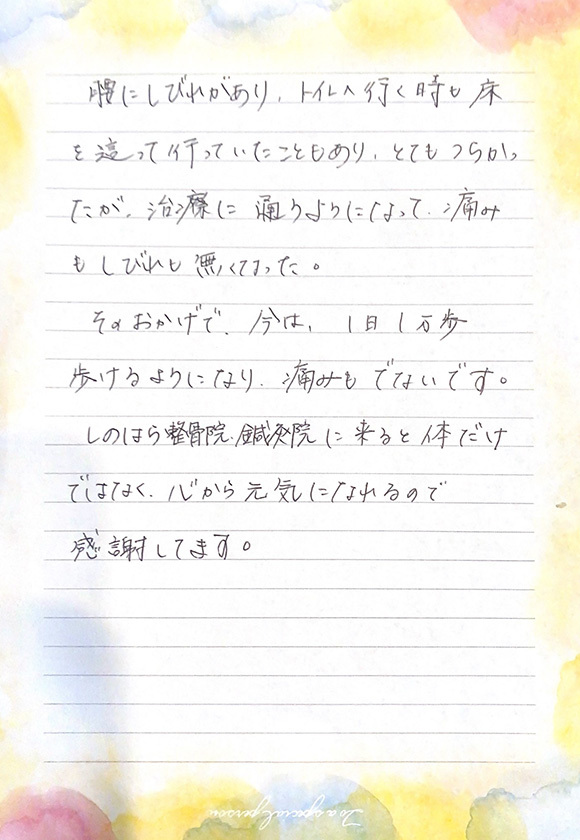 腰にしびれがあり、トイレへ行く時も床
を這って行っていたこともあり、とてもつらかっ
たが、治療に通うようになって、痛み
もしびれも無くなった。
そのおかげで、今は、1日1万歩
歩けるようになり、痛みもでないです。
しのはら整骨院・鍼灸院に来ると体だけ
ではなく、心から元気になれるので
感謝してます。
To a special person